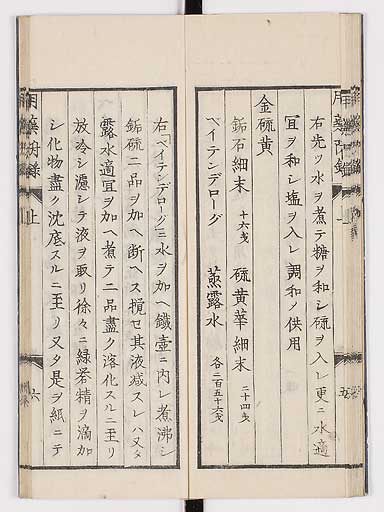 右先ツ水ヲ煮テ糖ヲ和シ硫ヲ入レ更ニ水適
宜ヲ和シ塩ヲ入レ調和ノ供用
金硫黄
鉐石細末 十六戔 硫黄華細末 二十四戔
ベイテンデローグ 蒸露水 各二百五十六戔
右「ベイテンデローグ」ニ水ヲ加ヘ鐵壷ニ内レ煮沸シ
鉐硫二品ヲ加ヘ断ヘス攪セ其液减スレハ又タ
露水適宜ヲ加ヘ煮テ二品盡ク溶化スルニ至リ
放冷シ濾シテ液ヲ取リ徐々ニ緑礬精ヲ滴加
シ化物盡ク沈底スルニ至リ又タ是ヲ紙ニテ
上
六
五